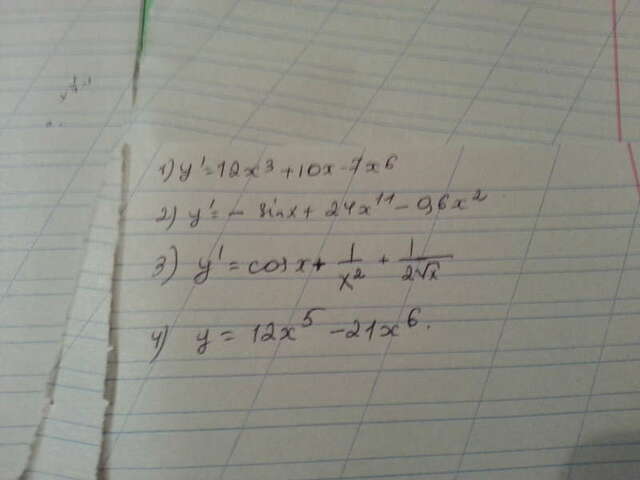 1) y' = 12x³ + 10x - 7x⁶
2) y' = - sinx + 24x¹¹ - 0,6x²
3) y' = cos x + 1/x² + 1/2√x
4) y = 12x⁵ - 21x⁶.